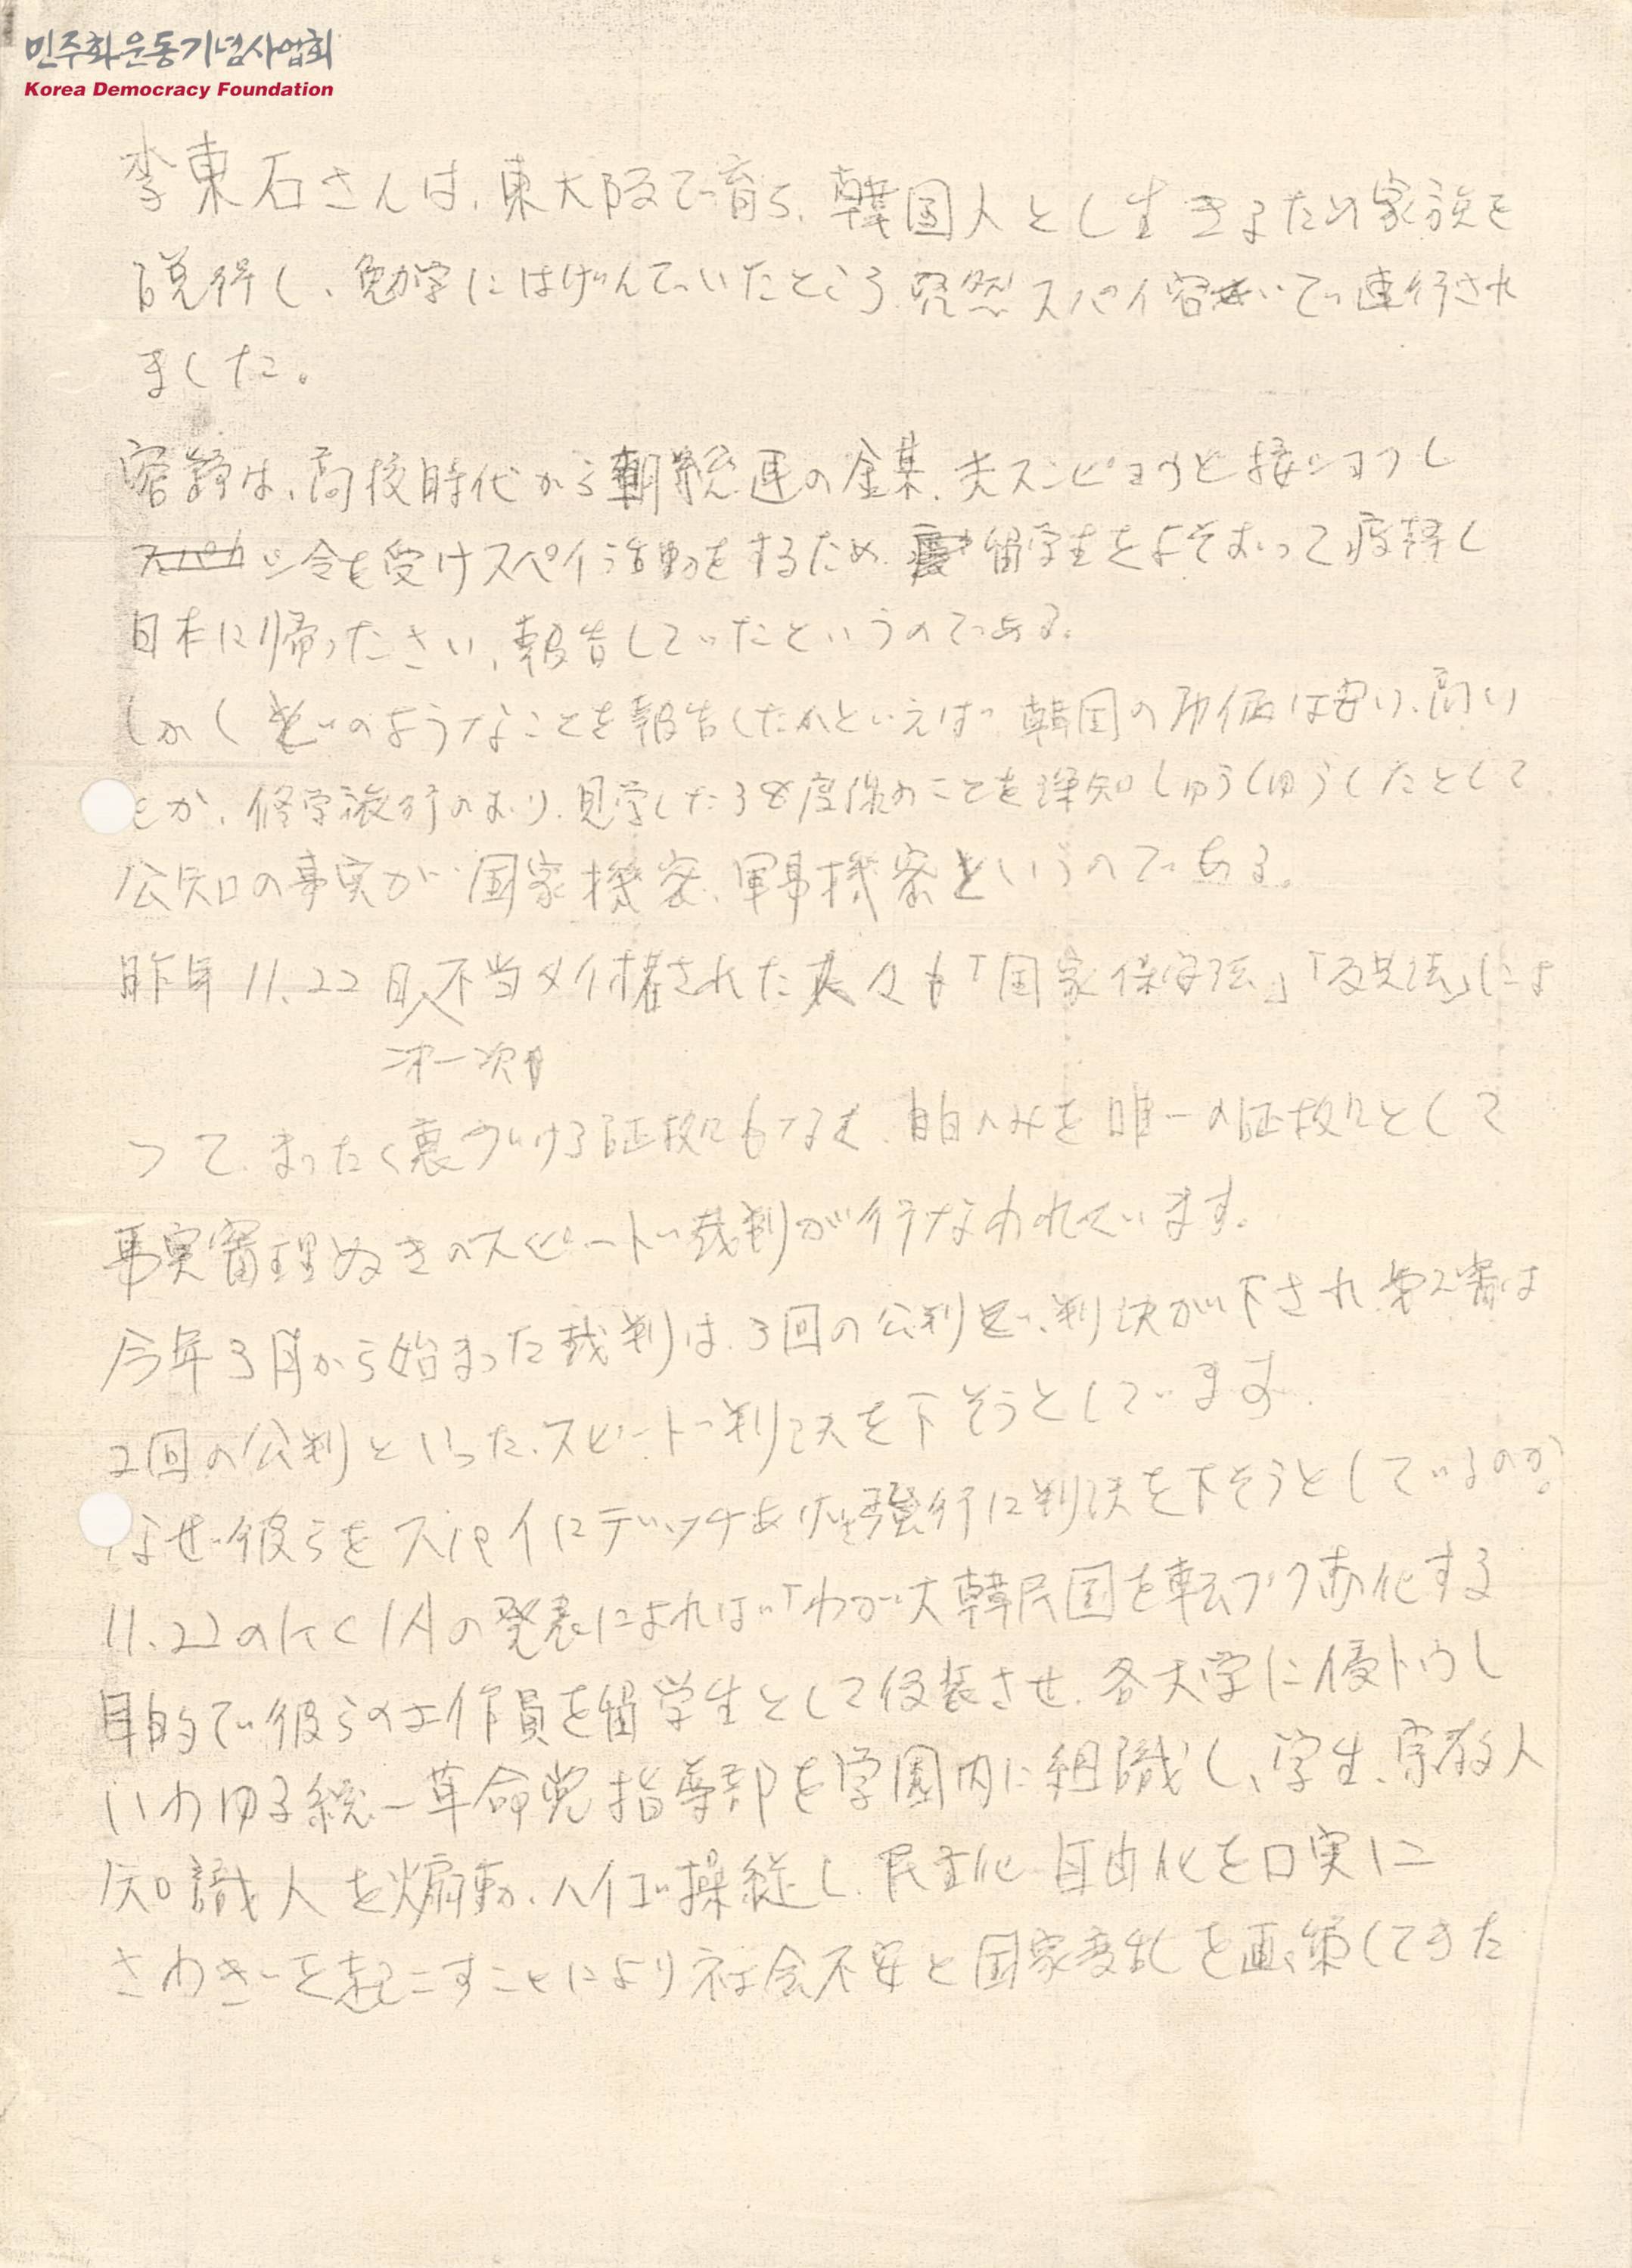 민주화운동기념사업회
Korea Democracy Foundation
李東石さんは、東大阪で育ち、韓国人とし生きるため家族を
説得し、勉学にはげんでいたところ 突然スパイ容疑で連行され
ました。
容疑は、高校時代から朝総連の金某、夫スンピョウと接ショクし
シ令を受けスペイ活動をするため 留学生をよそおって
日本に帰ったさい、報告していたというのである。
しかしどのようなことを報告したかといえば 韓国の物価は安い、高い
とか、修学旅行のおり、見学した38度線のことを探知しゅうしゅうしたとして
公知の事実が国家機密、軍事機密というのである。
昨年11.22日不当タイ捕された人々も「国家保安法」「反共法」によ
オ一次
って、まったく裏づける証拠もなく、自白のみを唯一の証拠として
事実審理ぬきのスピード裁判が行なわれています。
今年3月から始まった裁判は、3回の公判で、判決が下され、第2審は
2回の公判といった、スピード判決を下そうとしています。
なぜ彼らをスパイにデッチあげ強行に判決を下そうとしているのか。
11.22のKCIAの発表によれば「わが大韓民国を転プク赤化する
目的で彼らの工作員を留学生として仮装させ、各大学に侵トウし
いわゆる統一革命党指導部を学園内に組織し、学生、宗教人
知識人を煽動、操縦し、民主化 自由化を口実に
さわぎを起こすことにより社会不安と国家変乱を画策してきた